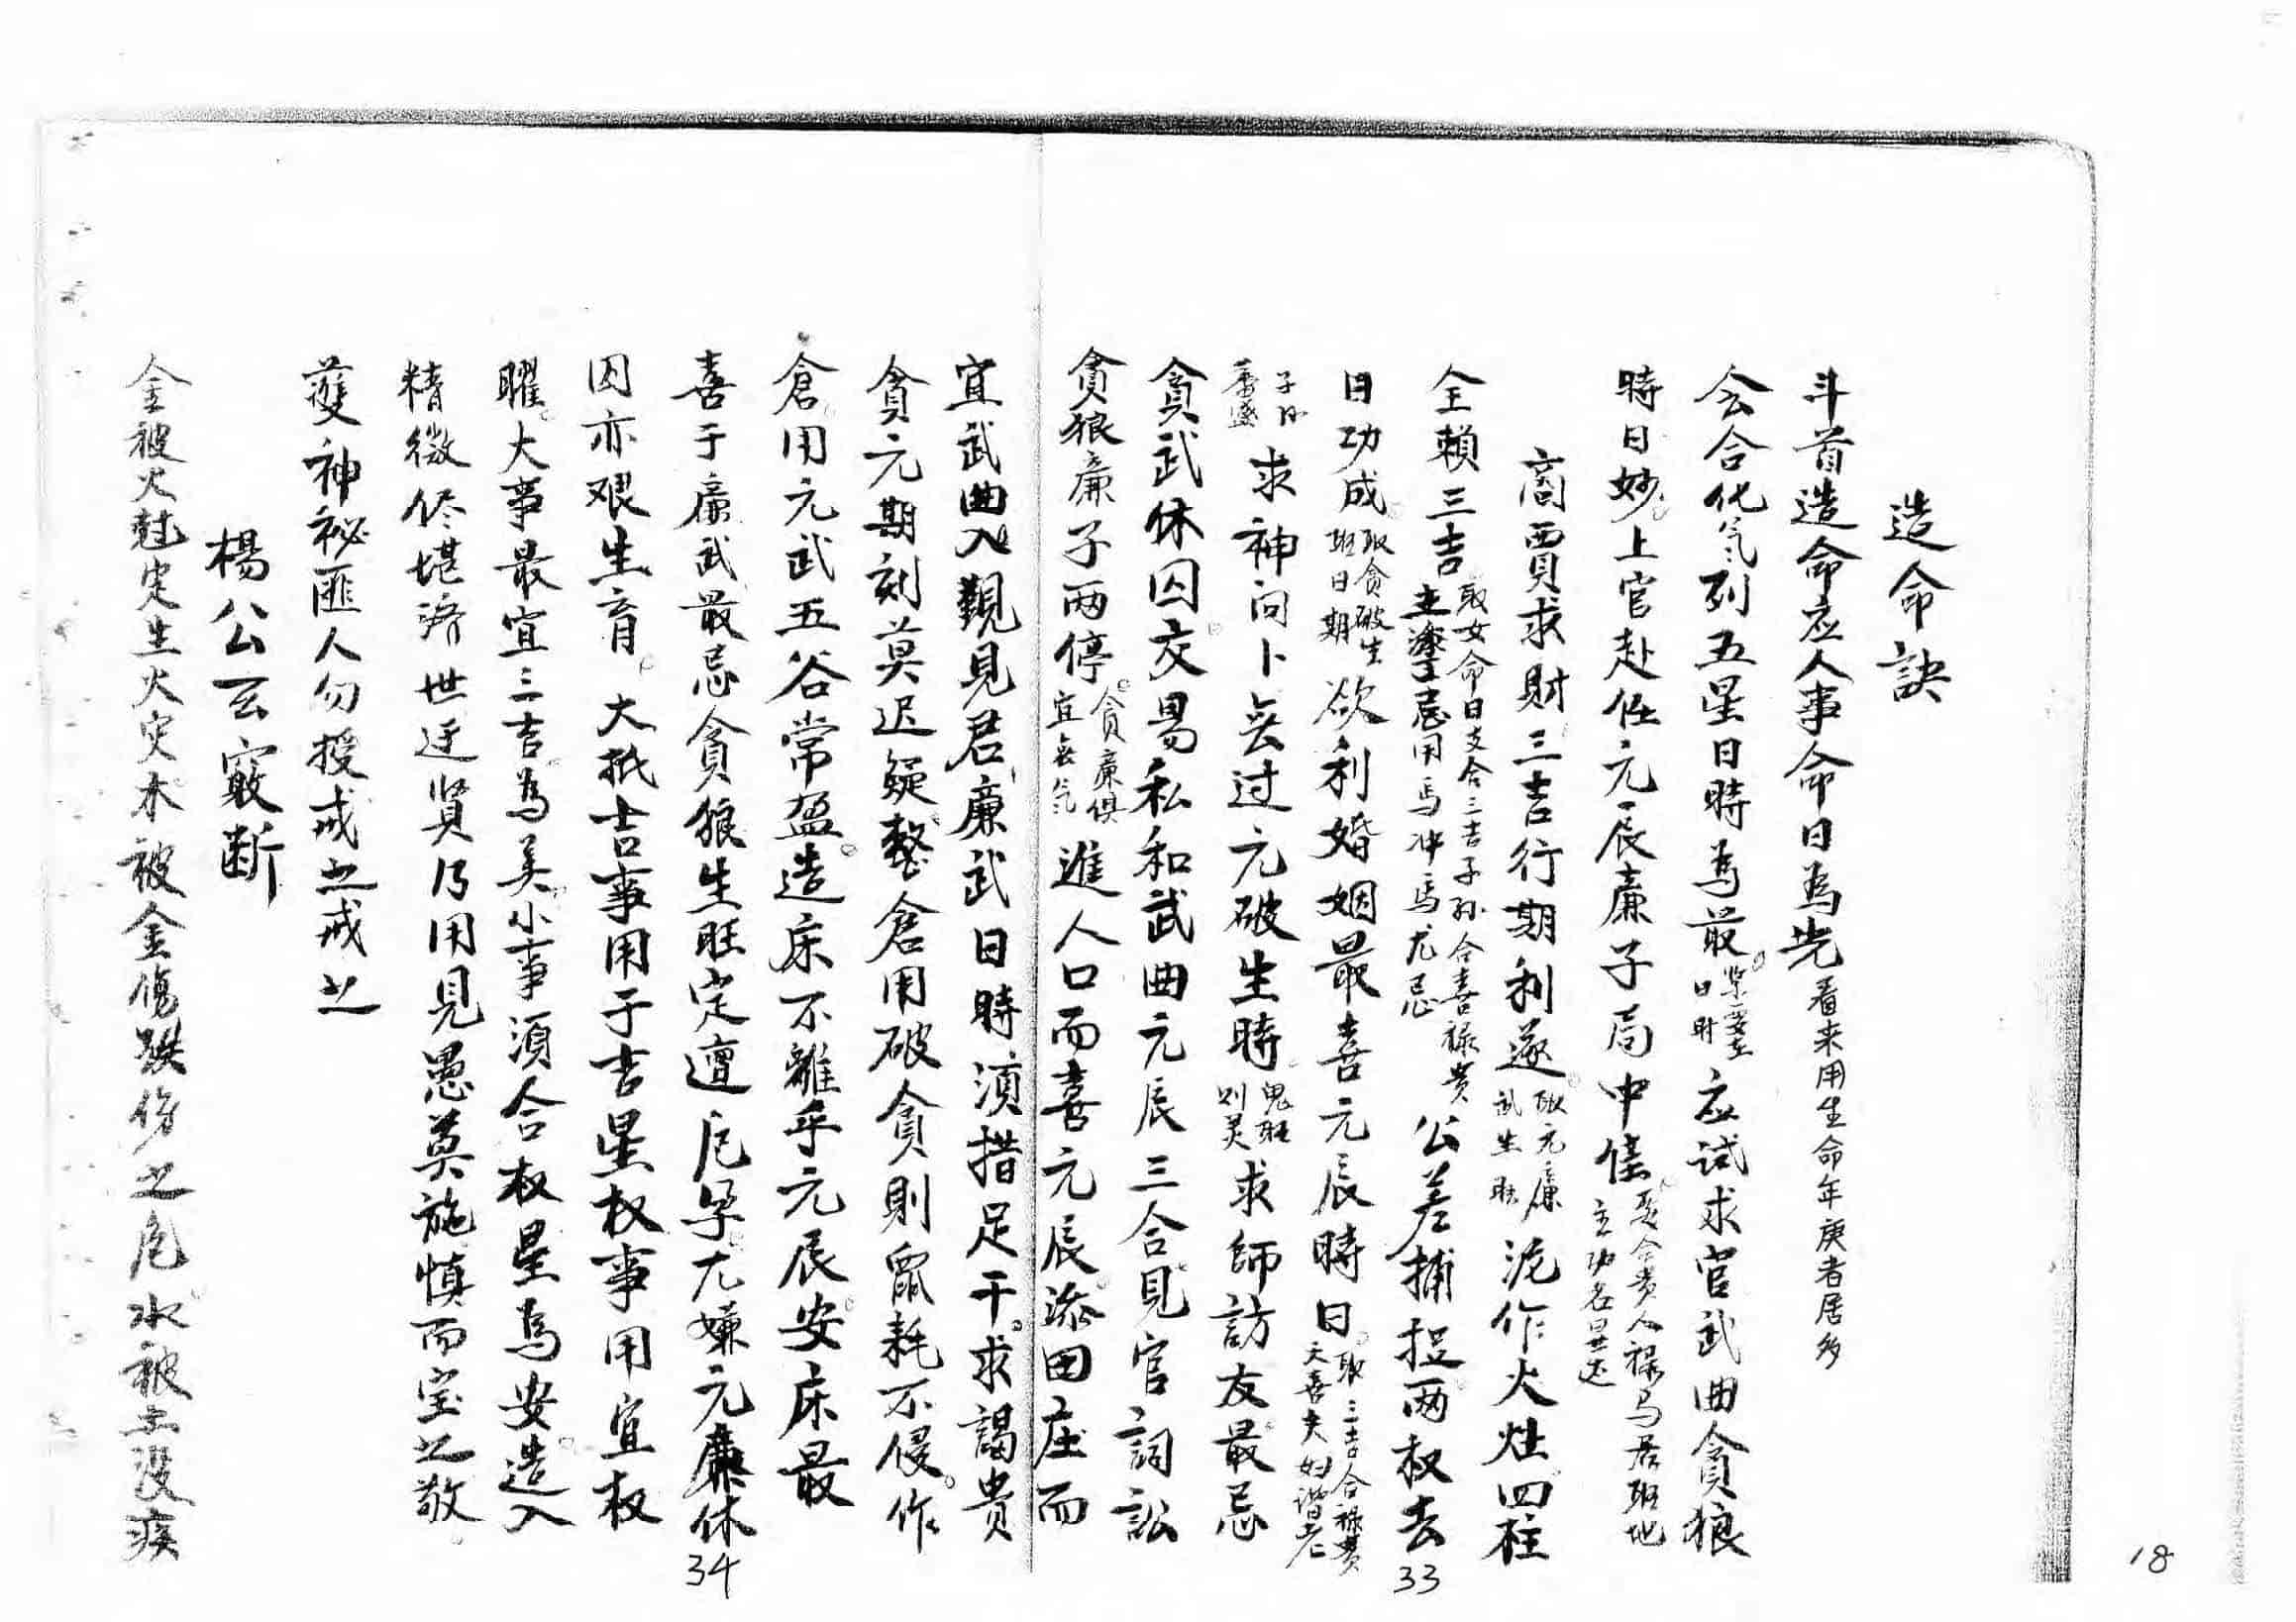 造命訣
斗首造命应人事命日為先看来用生命年庚者居多
会合化氣列五星日時為最日时应試求官武曲貪狼
時日妙上官赴任元辰廉子局中佳要合貴人禄马居旺地主功名显达
商賈求財三吉行期利遂取元廉武生旺泥作火灶四柱
全頼三吉取女命日支合三吉子孙合喜禄贵主灶忌用馬冲馬尤忌公差捕捉两权去
日功成取贪破生旺日期欲利婚姻最喜元辰時日取三吉合禄贵天喜夫妇谐老
子孙蕃盛求神问卜会过元破生時鬼旺则灵求師訪友最忌
貪武休囚交易私和武曲元辰三合見官詞訟
貪狼廉子两停贪廉俱宜会氣進人口而喜元辰添田庄而
宜武曲入觐見君廉武日時須措足干求謁貴
貪元期刻莫迟疑整倉用破貪則鼠耗不侵作
倉用元武五谷常盈造床不離乎元辰安床最
喜于廉武最忌貪狼生旺定遭厄孕尤嫌元廉休
囚亦艰生育大抵吉事用于吉星权事用宜权
曜大事最宜三吉為美小事須合权星為安造入
精微侭堪济世迂贤乃用見愚莫施慎而宝之敬
護神祕匪人勿授戒之戒之
楊公云竅断
金被火尅定生火灾木被金傷跌伤之危水被土没疾
34
33
18